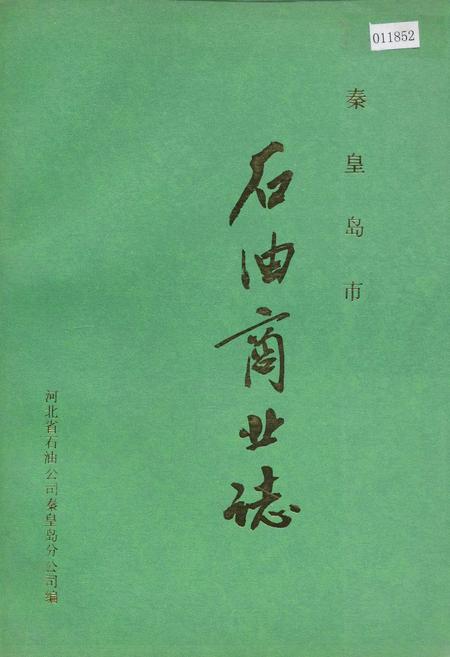 011852
秦皇岛市
石油商业誌
河北省石油公司秦皇岛分公司编